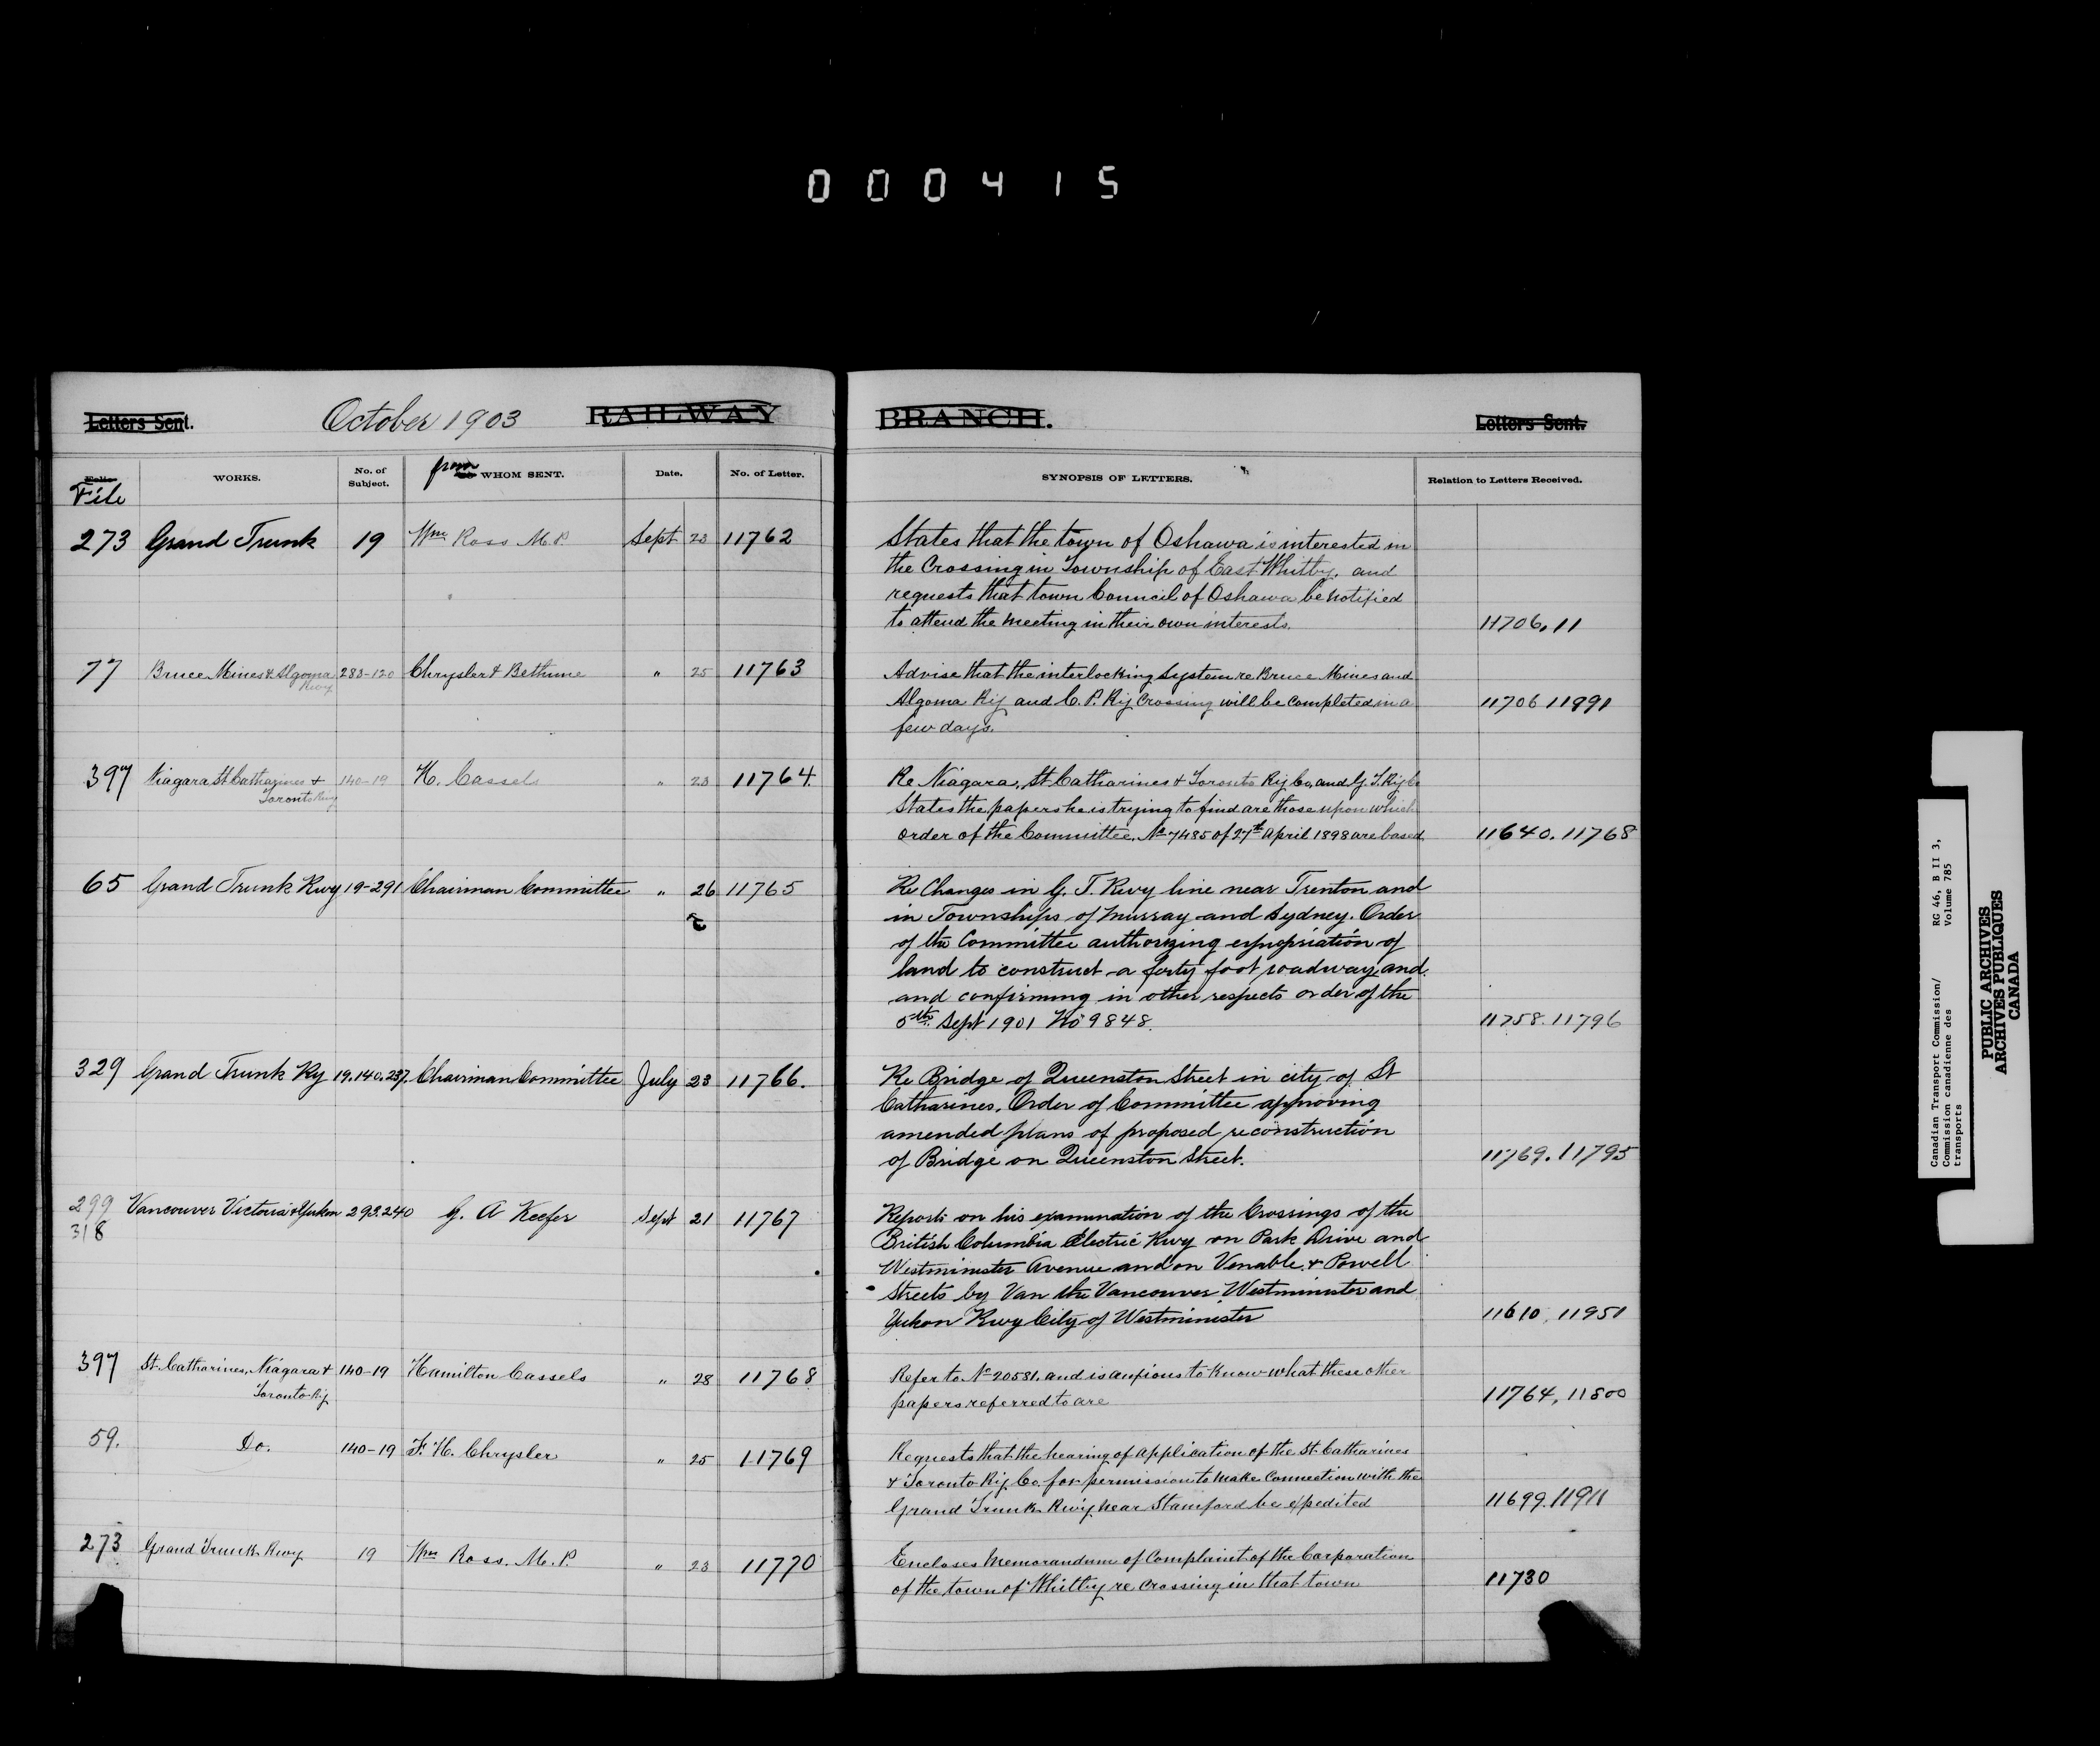 000415
Letters Sent. October 1903 RAILWAY BRANCH. Letters Sent.
File WORKS. No. of Subject. from WHOM SENT. Date. No. of Letter. SYNOPSIS OF LETTERS. Relation to Letters Received.
273 Grand Trunk 19 Wm Ross M.P. Sept 23 11762 States that the town of Oshawa is interested in
the Crossing in Township of East Whitby, and
requests that town Council of Oshawa be notified
to attend the meeting in their own interests. 11706, 11
77 Bruce Mines & Algoma Rwy 283-120 Chrysler & Bethune " 25 11763 Advise that the interlocking system re Bruce Mines and
Algoma Ry and C. P. Ry Crossing will be completed in a 11706 11891
few days.
397 Niagara St. Catharines & 140-19 H. Cassels " 23 11764. Re Niagara, St. Catharines & Toronto Ry Co, and G. T. Ry Co
Toronto Rwy States the papers he is trying to find are those upon which
order of the Committee, No 7485 of 27th April 1898 are based 11640. 11768
65 Grand Trunk Rwy 19-291 Chairman Committee " 26 11765 Re Changes in G. T. Rwy line near Trenton and
in Townships of Murray and Sydney. Order
of the Committee authorizing expropriation of
land to construct a forty foot roadway, and
and confirming in other respects order of the
5th Sept 1901 No 9848. 11758. 11796
329 Grand Trunk Ry 19.140.237. Chairman Committee July 23 11766. Re Bridge of Queenston Street in city of St
Catharines, Order of Committee approving
amended plans of proposed reconstruction
of Bridge on Queenston Street. 11769. 11795
299 Vancouver Victoria & Yukon 293.240 G. A Keefer Sept 21 11767 Reports on his examination of the Crossings of the
318 British Columbia Electric Rwy on Park Drive and
Westminister Avenue and on Venable & Powell
Streets by Van the Vancouver Westminister and
Yukon Rwy City of Westminister 11610, 11951
397 St. Catharines, Niagara & 140-19 Hamilton Cassels " 28 11768 Refer to No 20581, and is anxious to know what these other
Toronto Ry papers referred to are 11764, 11800
59. Do. 140-19 F. H. Chrysler " 25 11769 Requests that the hearing of application of the St. Catharines
& Toronto Ry. Co. for permission to make connection with the
Grand Trunk Rwy near Stamford be expedited 11699. 11911
273 Grand Trunk Rwy 19 Wm Ross. M. P. " 23 11770 Encloses Memorandum of Complaint of the Corporation
of the town of Whitby re crossing in that town 11730
Canadian Transport Commission/ RG 46, B II 3,
Commission canadienne des Volume 785
transports
PUBLIC ARCHIVES
ARCHIVES PUBLIQUES
CANADA